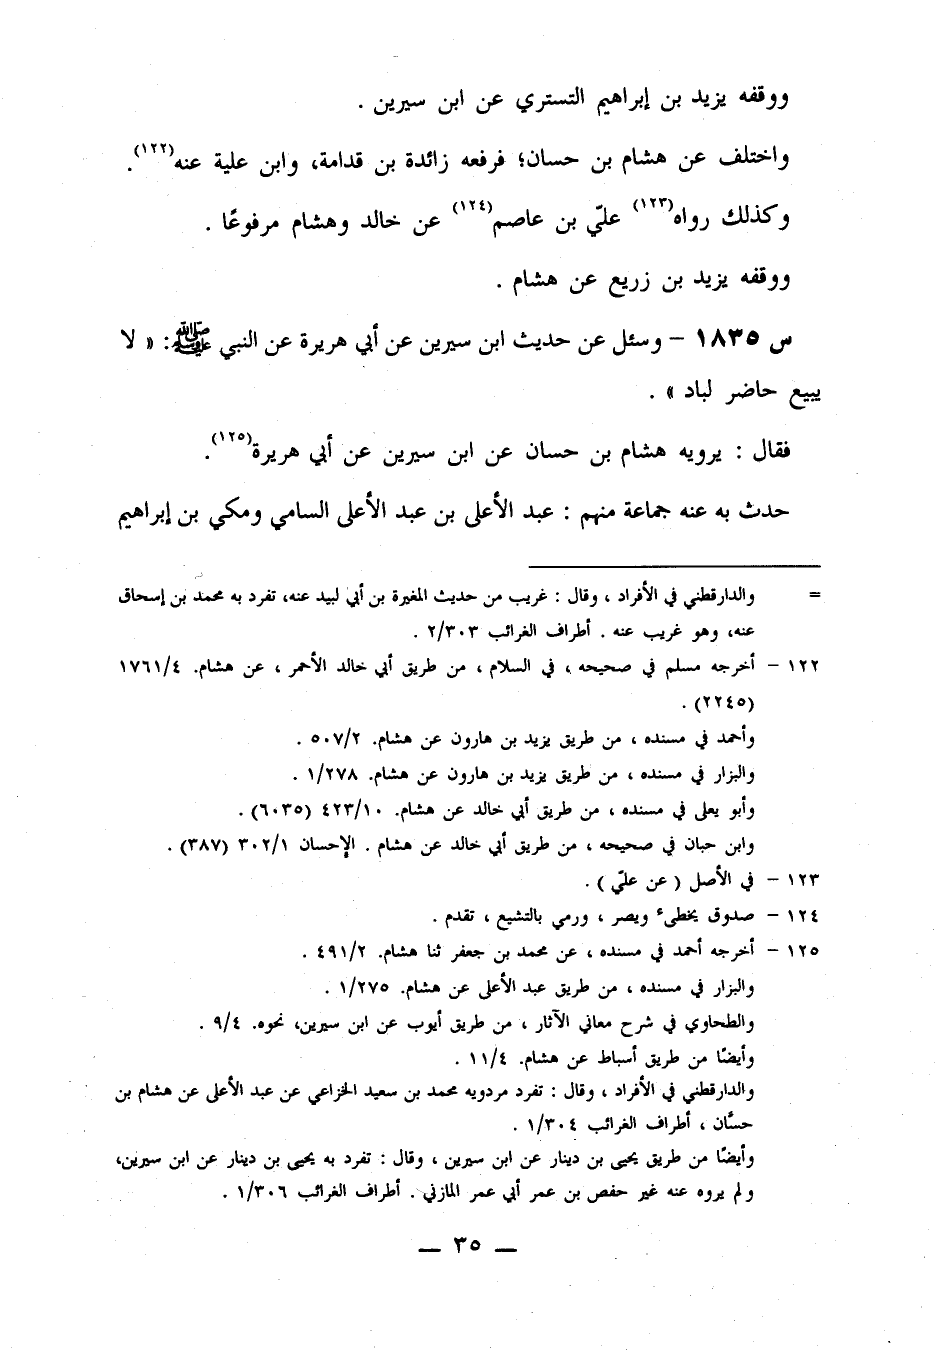 ووقفه يزيد بن إبراهيم التستري عن ابن سيرين .
واختلف عن هشام بن حسان؛ فرفعه زائدة بن قدامة، وابن علية عنه(١٢٢).
وكذلك رواه(١٢٣) عليّ بن عاصم(١٢٤) عن خالد وهشام مرفوعًا .
ووقفه يزيد بن زريع عن هشام .
س ١٨٣٥ – وسئل عن حديث ابن سيرين عن أبي هريرة عن النبي ﷺ: « لا
يبيع حاضر لباد » .
فقال : يرويه هشام بن حسان عن ابن سيرين عن أبي هريرة(١٢٥).
حدث به عنه جماعة منهم : عبد الأعلى بن عبد الأعلى السامي ومكي بن إبراهيم
= والدارقطني في الأفراد ، وقال : غريب من حديث المغيرة بن أبي لبيد عنه، تفرد به محمد بن إسحاق
عنه، وهو غريب عنه . أطراف الغرائب ٢/٣٠٣ .
١٢٢ – أخرجه مسلم في صحيحه ، في السلام ، من طريق أبي خالد الأحمر ، عن هشام. ١٧٦١/٤
(٢٢٤٥) .
وأحمد في مسنده ، من طريق يزيد بن هارون عن هشام. ٥٠٧/٢ .
والبزار في مسنده ، من طريق يزيد بن هارون عن هشام. ١/٢٧٨ .
وأبو يعلى في مسنده ، من طريق أبي خالد عن هشام. ٤٢٣/١٠ (٦٠٣٥) .
وابن حبان في صحيحه ، من طريق أبي خالد عن هشام . الإحسان ٣٠٢/١ (٣٨٧) .
١٢٣ – في الأصل ( عن عليّ ) .
١٢٤ – صدوق يخطىء ويصر ، ورمي بالتشيع ، تقدم .
١٢٥ – أخرجه أحمد في مسنده ، عن محمد بن جعفر ثنا هشام. ٤٩١/٢ .
والبزار في مسنده ، من طريق عبد الأعلى عن هشام. ١/٢٧٥ .
والطحاوي في شرح معاني الآثار ، من طريق أيوب عن ابن سيرين، نحوه. ٩/٤ .
وأيضًا من طريق أسباط عن هشام. ١١/٤ .
والدارقطني في الأفراد ، وقال : تفرد مردويه محمد بن سعيد الخزاعي عن عبد الأعلى عن هشام بن
حسَّان ، أطراف الغرائب ١/٣٠٤ .
وأيضًا من طريق يحيى بن دينار عن ابن سيرين ، وقال : تفرد به يحيى بن دينار عن ابن سيرين،
ولم يروه عنه غير حفص بن عمر أبي عمر المازني . أطراف الغرائب ١/٣٠٦ .
— ٣٥ —